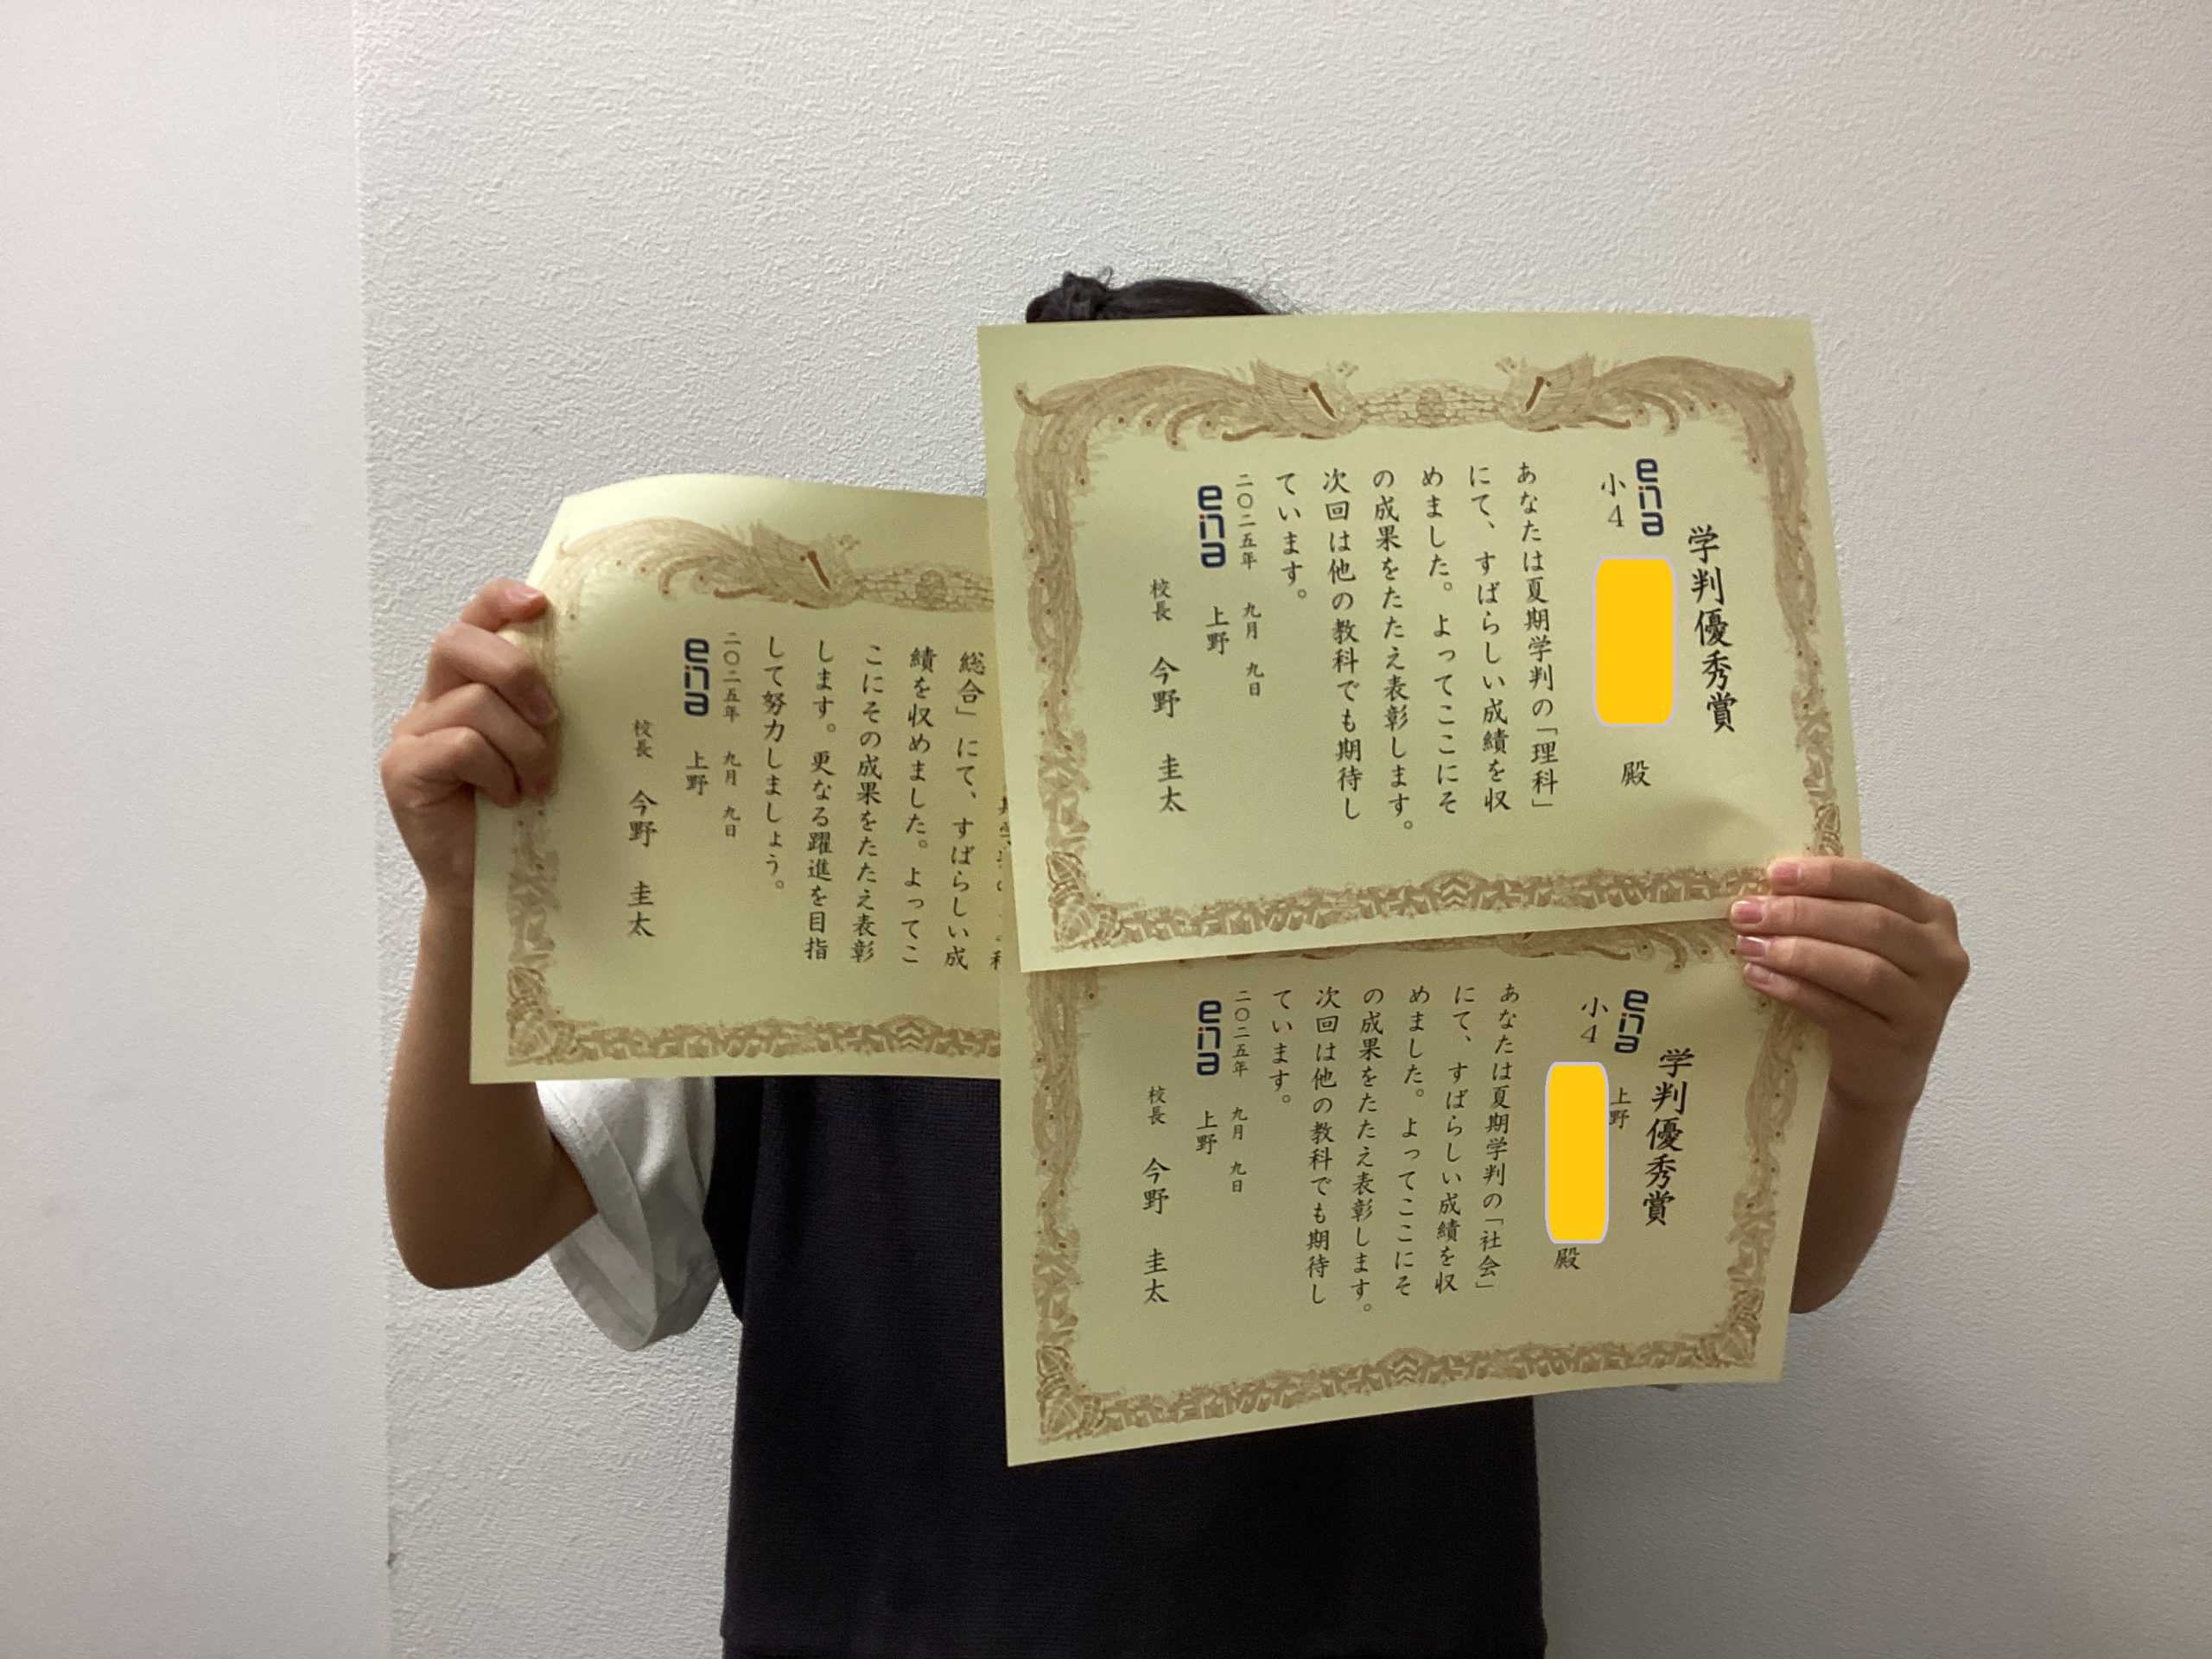 学判優秀賞
ena
小4
殿
あなたは夏期学判の「理科」
にて、すばらしい成績を収
めました。よってここにそ
の成果をたたえ表彰します。
次回は他の教科でも期待し
ています。
二〇二五年 九月 九日
ena 上野
校長 今野 圭太
学判優秀賞
ena 上野
小4
殿
あなたは夏期学判の「社会」
にて、すばらしい成績を収
めました。よってここにそ
の成果をたたえ表彰します。
次回は他の教科でも期待し
ています。
二〇二五年 九月 九日
ena 上野
校長 今野 圭太
総合」にて、すばらしい成
績を収めました。よってこ
こにその成果をたたえ表彰
します。更なる躍進を目指
して努力しましょう。
二〇二五年 九月 九日
ena 上野
校長 今野 圭太